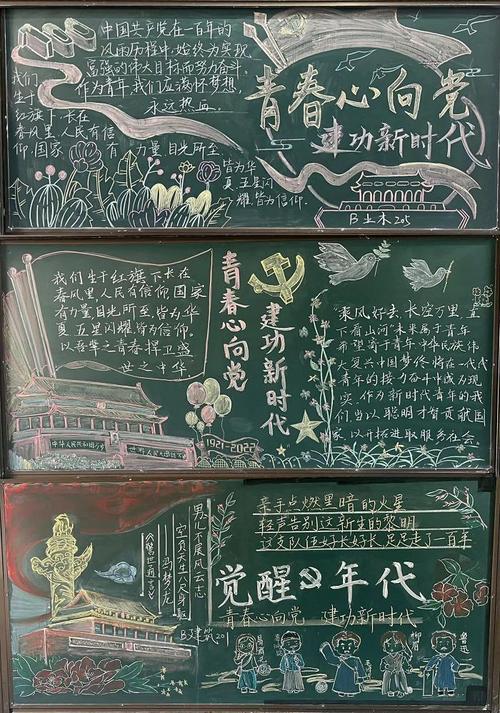 中国共产党在一百年的
风雨历程中,始终为实现
富强的伟大目标而努力奋斗.
作为青年,我们应满怀梦想,
永远热血.
我们
生于
红旗下,长在
春风里,人民有信
仰,国家有力量,目光所至
皆为华
夏,五星闪
耀,皆为信仰.
青春心向党
建功新时代
B土木205
我们生于红旗下,长在
春风里,人民有信仰,国家
有力量,目光所至皆为华
夏,五星闪耀皆为信仰.
以吾辈之青春捍卫盛
世之中华
中华人民共和国万岁
世界人民大团结万岁
青春心向党
建功新时代
1921-2022
"乘风好去,长空万里,直
下看山河"未来属于青年
希望寄于青年,中华民族伟
大复兴中国梦终将在一代代
青年的接力奋斗中成为现
实.作为新时代青年的我
们,当以聪明才智贡献国
家,以开拓进取服务社会
男儿不展风云志
空负天生八尺躯
——冯梦龙
《警世通言》
B建筑201
亲手点燃黑暗的火星
轻声告别这新生的黎明
这支队伍好长好长,足足走了一百年
觉醒年代
青春心向党 建功新时代
鲁迅